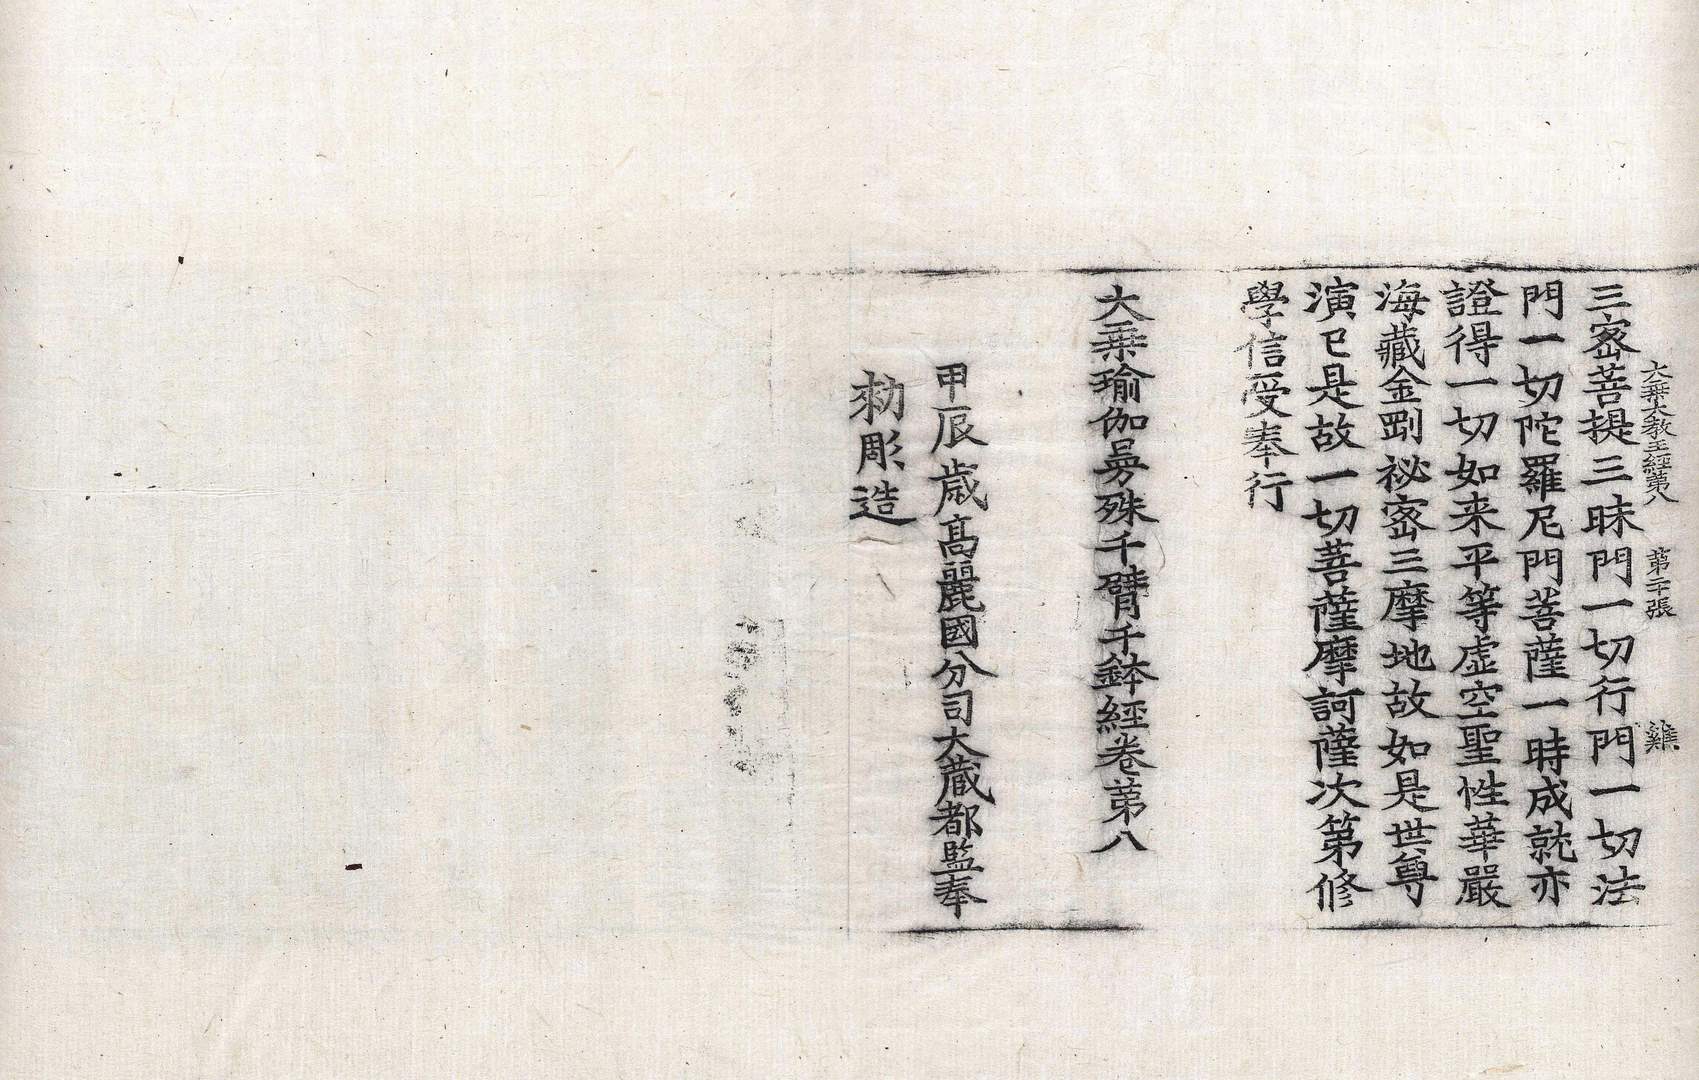 大乗大教王經第八 第二十張 雞
三宻菩提三昧門一切行門一切法
門一切陀羅尼門菩薩一時成就亦
證得一切如来平等虛空聖性華嚴
海藏金剛祕宻三摩地故如是世尊
演已是故一切菩薩摩訶薩次第修
學信受奉行
大乗瑜伽曼殊千臂千鉢經卷第八
甲辰歲高麗國分司大藏都監奉
勑彫造